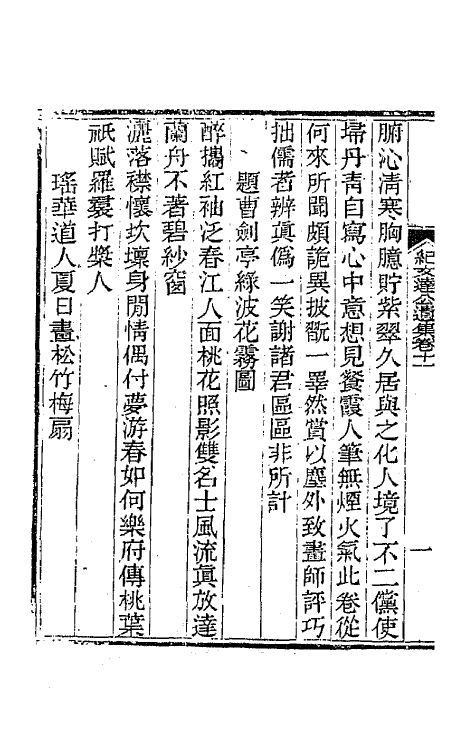 紀文達公遺集卷十一
一
腑沁淸寒胸臆貯紫翠久居與之化人境了不二儻使
埽丹靑自寫心中意想見餐霞人筆無煙火氣此卷從
何來所聞頗詭異披翫一羣然賞以塵外致畫師評巧
拙儒者辨眞僞一笑謝諸君區區非所計
題曹劍亭綠波花霧圖
醉攜紅袖泛春江人面桃花照影雙名士風流眞放達
蘭舟不著碧紗窗
灑落襟懷坎壈身閒情偶付夢游春如何樂府傳桃葉
祇賦羅裙打槳人
瑤華道人夏日畫松竹梅扇